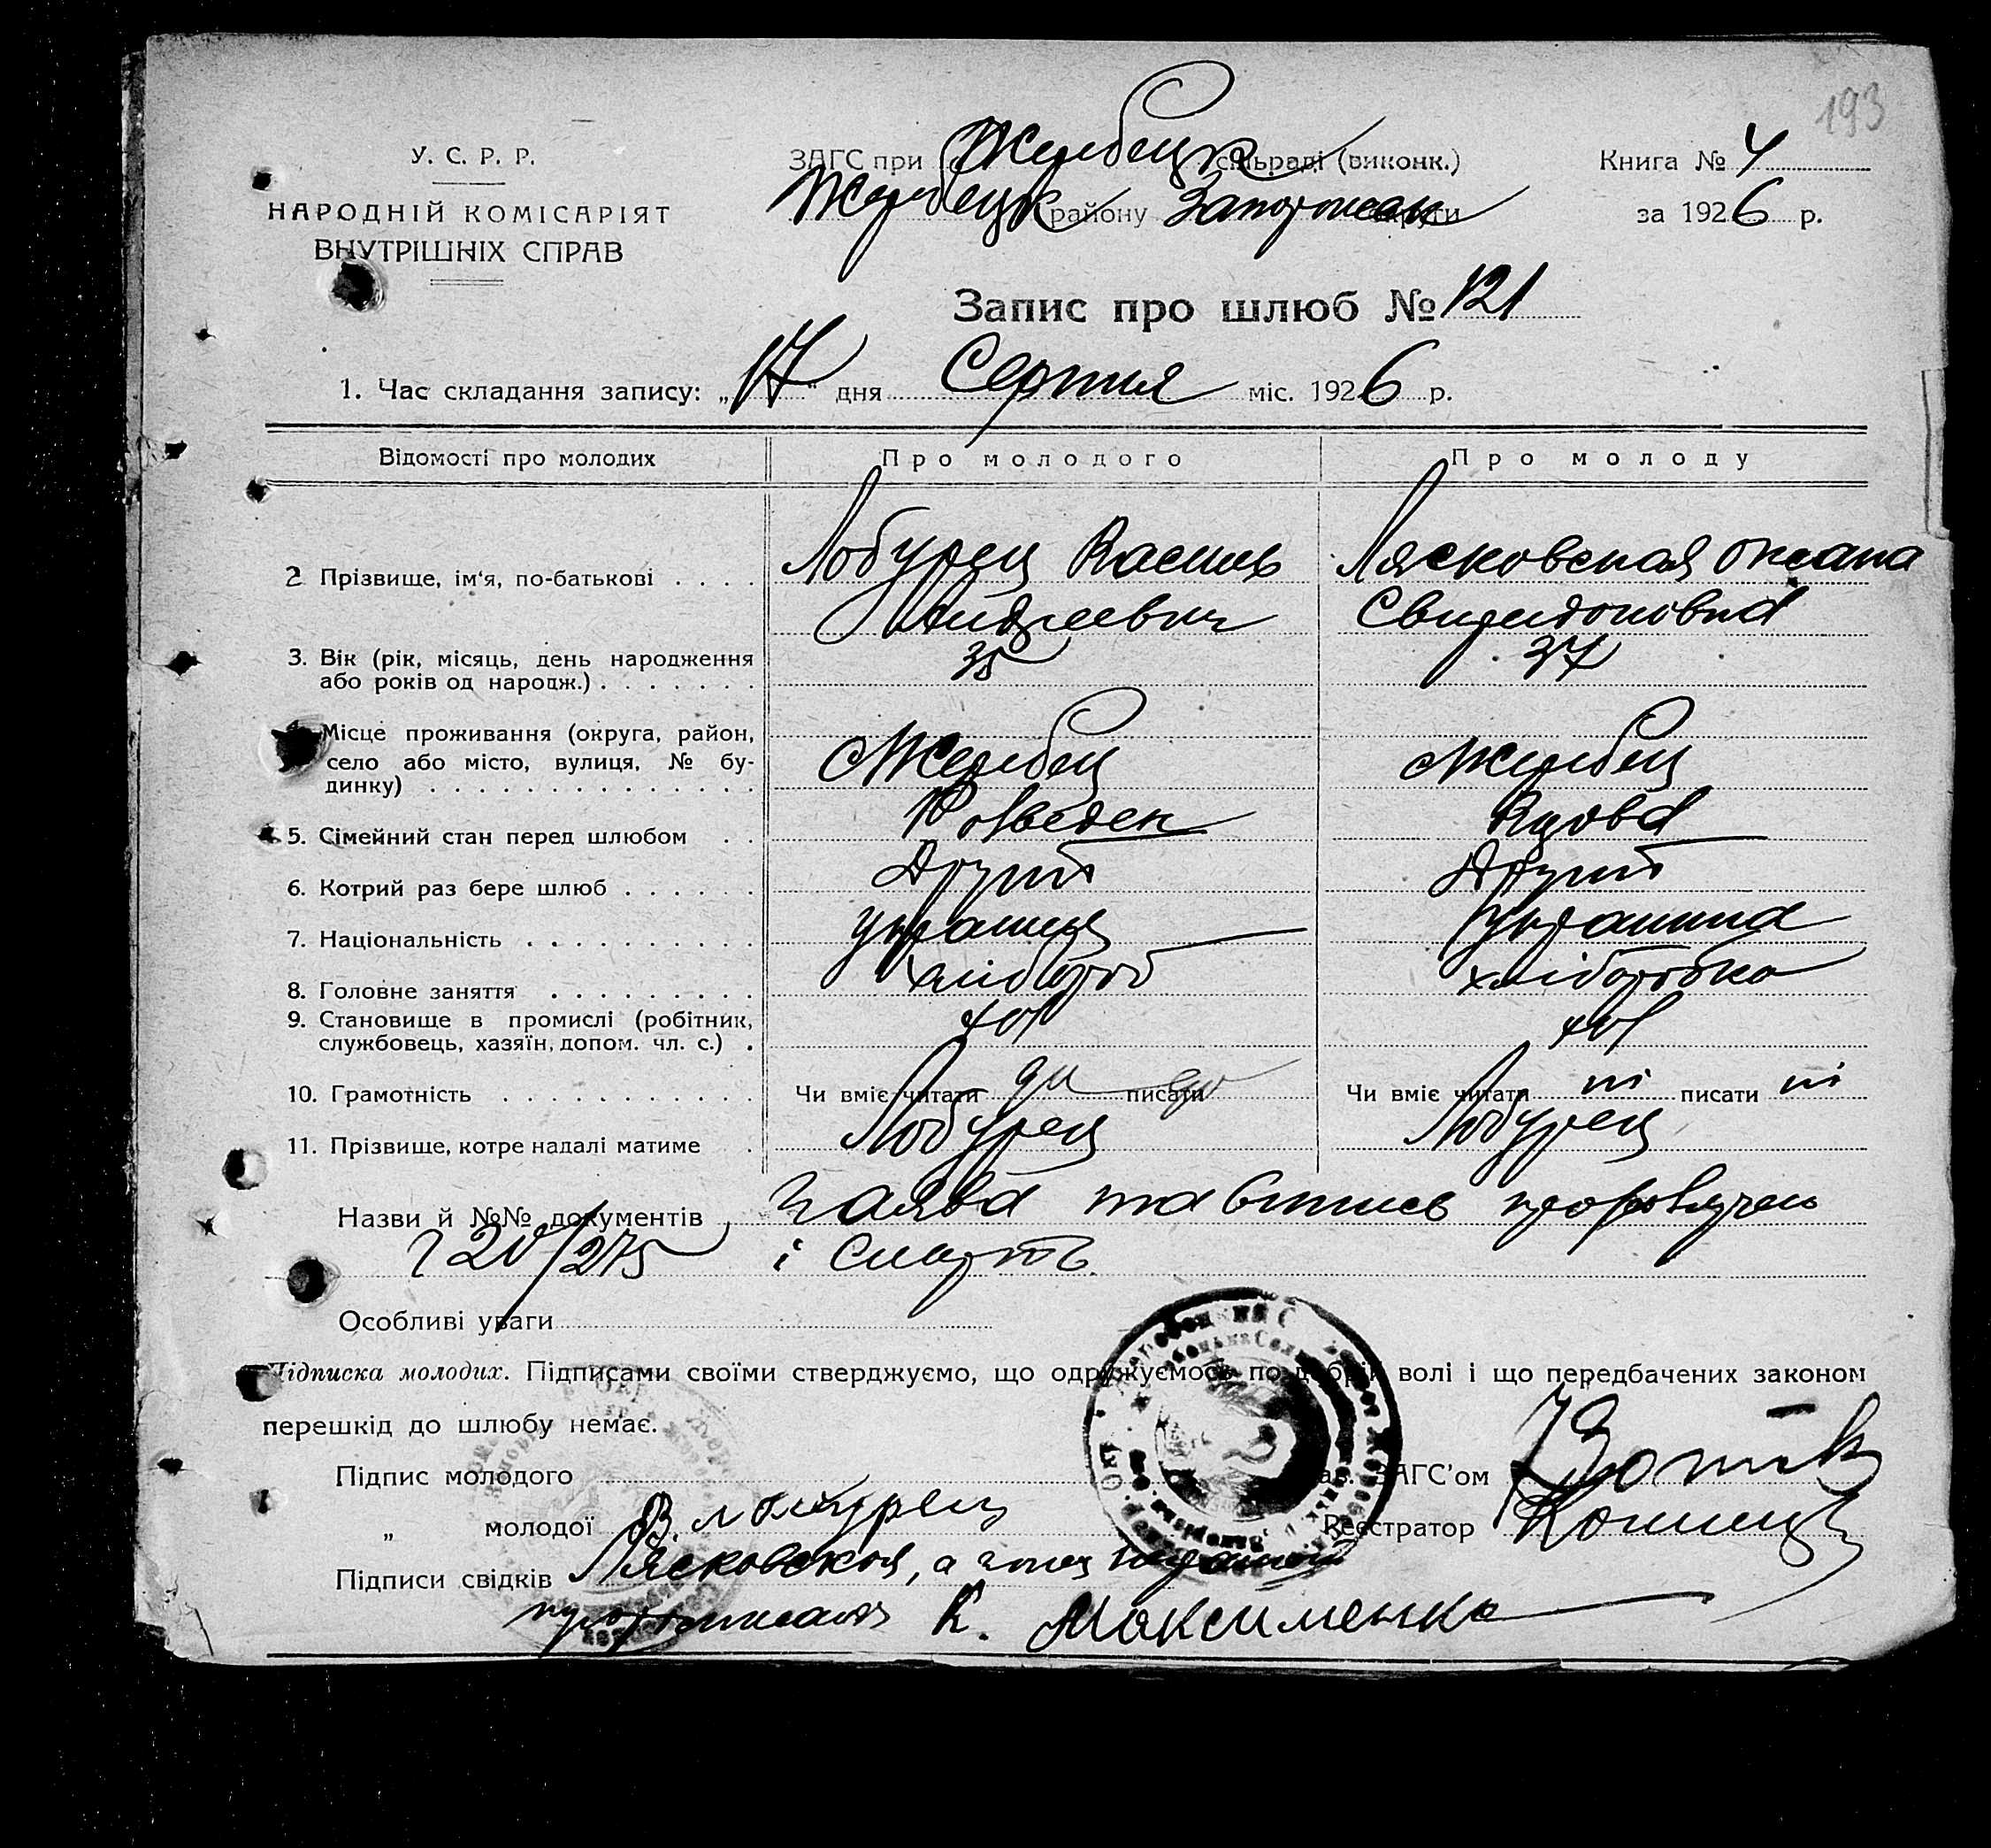 193
У. С. Р. Р.
НАРОДНІЙ КОМІСАРІЯТ
ВНУТРІШНІХ СПРАВ
ЗАГС при Жеребецк сільраді (виконк.)
Жеребецк району Запорожск округи
Книга № 4
за 1926 р.
Запис про шлюб № 121
1. Час складання запису: „17" дня Серпня міс. 1926 р.
Відомості про молодих Про молодого Про молоду
2 Прізвище, ім'я, по-батькові . . . . Лобурец Василь Лясковская Оксана
Андреевич Свиридоновна
3. Вік (рік, місяць, день народження
або років од народж.) . . . . . . . 35 37
4. Місце проживання (округа, район,
село або місто, вулиця, № бу-
динку) . . . . . . . . . . . . . . Жеребец Жеребец
5. Сімейний стан перед шлюбом . . Розведен Вдова
6. Котрий раз бере шлюб . . . . . . Другий Другий
7. Національність . . . . . . . . . . украинец украинка
8. Головне заняття . . . . . . . . . хлібороб хліборобка
9. Становище в промислі (робітник,
службовець, хазяїн, допом. чл. с.) . хоз хоз
10. Грамотність . . . . . . . . . . . Чи вміє читати да писати да Чи вміє читати ні писати ні
11. Прізвище, котре надалі матиме . Лобурец Лобурец
Назви й №№ документів Заява та випись про розлучень
220/275 і смерть
Особливі уваги
Підписка молодих. Підписами своїми стверджуємо, що одружуємось по добрій волі і що передбачених законом
перешкід до шлюбу немає.
Підпис молодого Зав. ЗАГС'ом
„ молодої В. Лобурец Реєстратор
Підписи свідків Лясковская, а за неї
К. Максименко